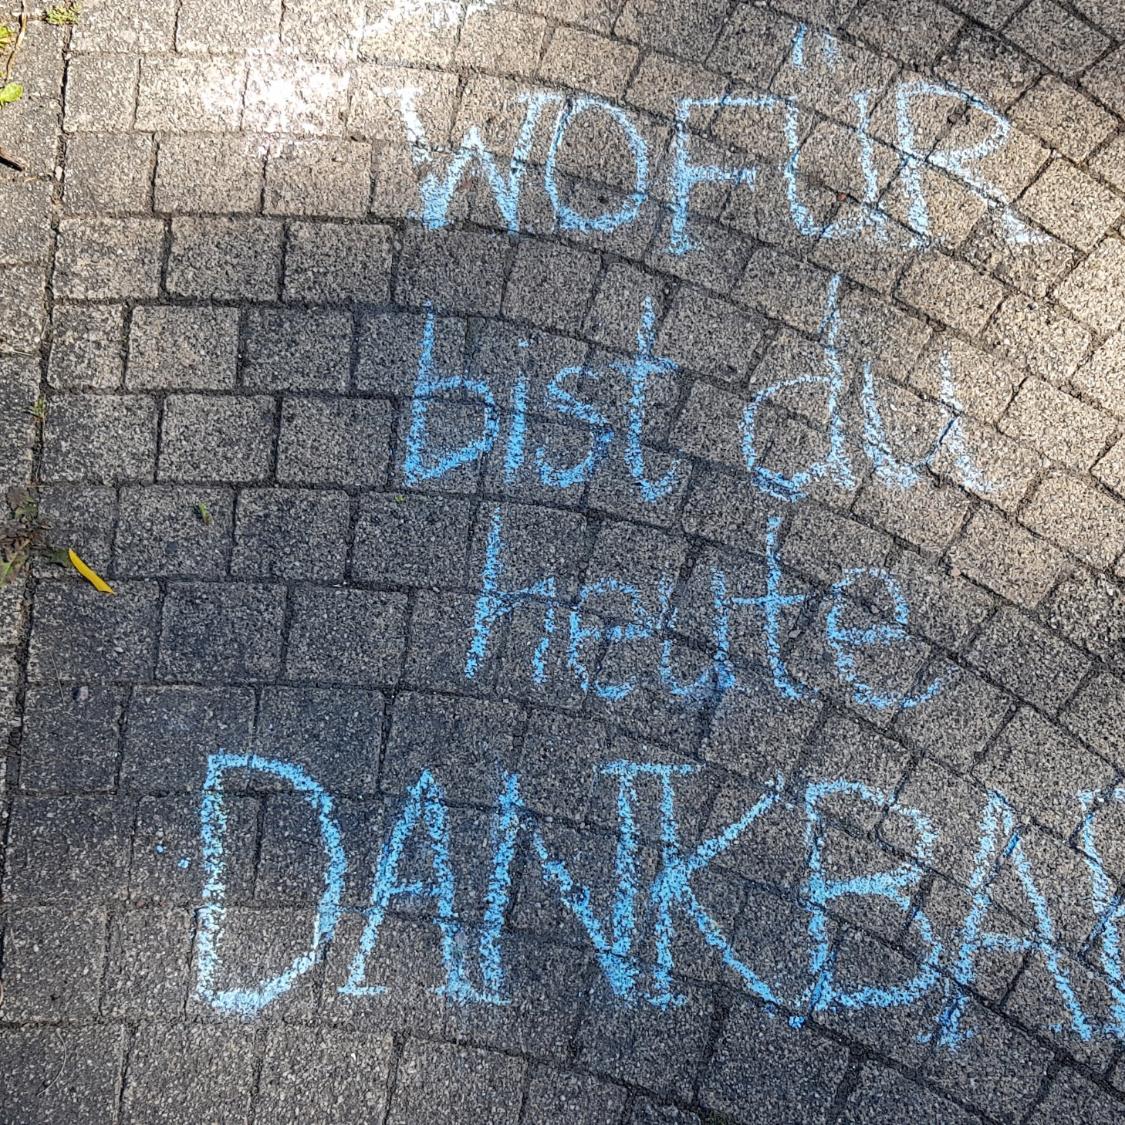 WOFÜR
bist du
heute
DANKBAR